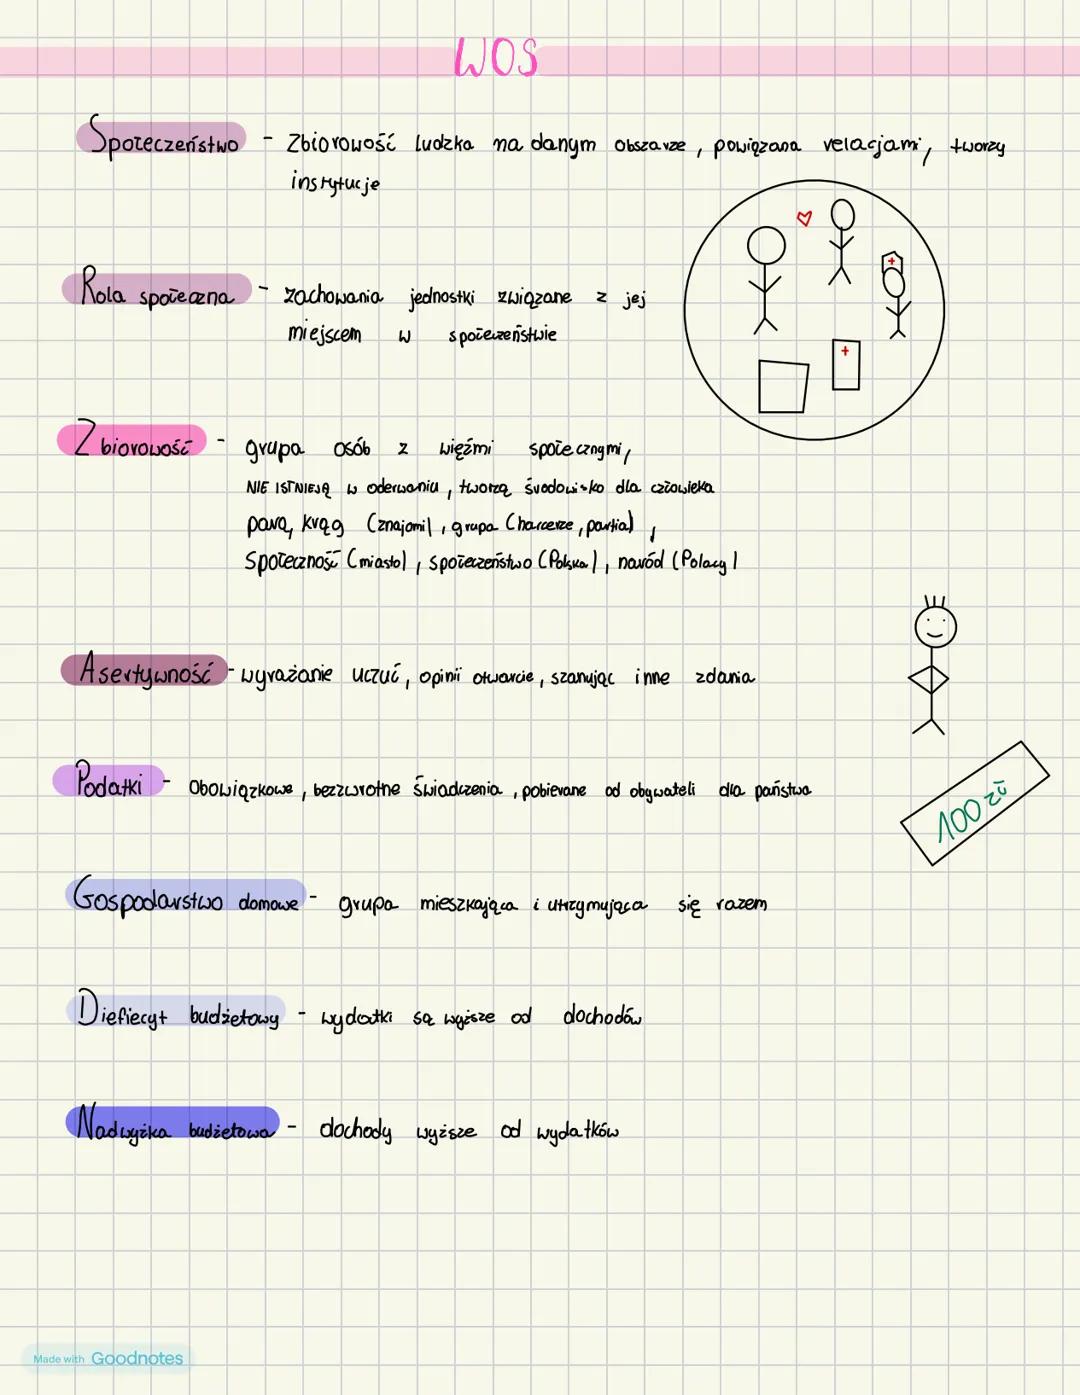 WOS
Społeczeństwo - Zbiorowość ludzka na danym obszarze, powiązana relacjami, tworzy
instytucje
Rola społeczna - zachowania jednostki związane z jej
miejscem w społeczeństwie
Zbiorowość - grupa osób z więźmi społecznymi,
NIE ISTNIEJĄ w oderwaniu, tworzą środowisko dla człowieka
para, krąg (znajomi), grupa (harcerze, partia),
Społeczność (miasto), społeczeństwo (Polska), naród (Polacy)
Asertywność - wyrażanie uczuć, opinii otwarcie, szanując inne zdania
Podatki - Obowiązkowe, bezzwrotne świadczenia, pobierane od obywateli dla państwa
100 zł
Gospodarstwo domowe - grupa mieszkająca i utrzymująca się razem
Diefiecyt budżetowy - wydatki są wyższe od dochodów
Nadwyżka budżetowa - dochody wyższe od wydatków
Made with Goodnotes